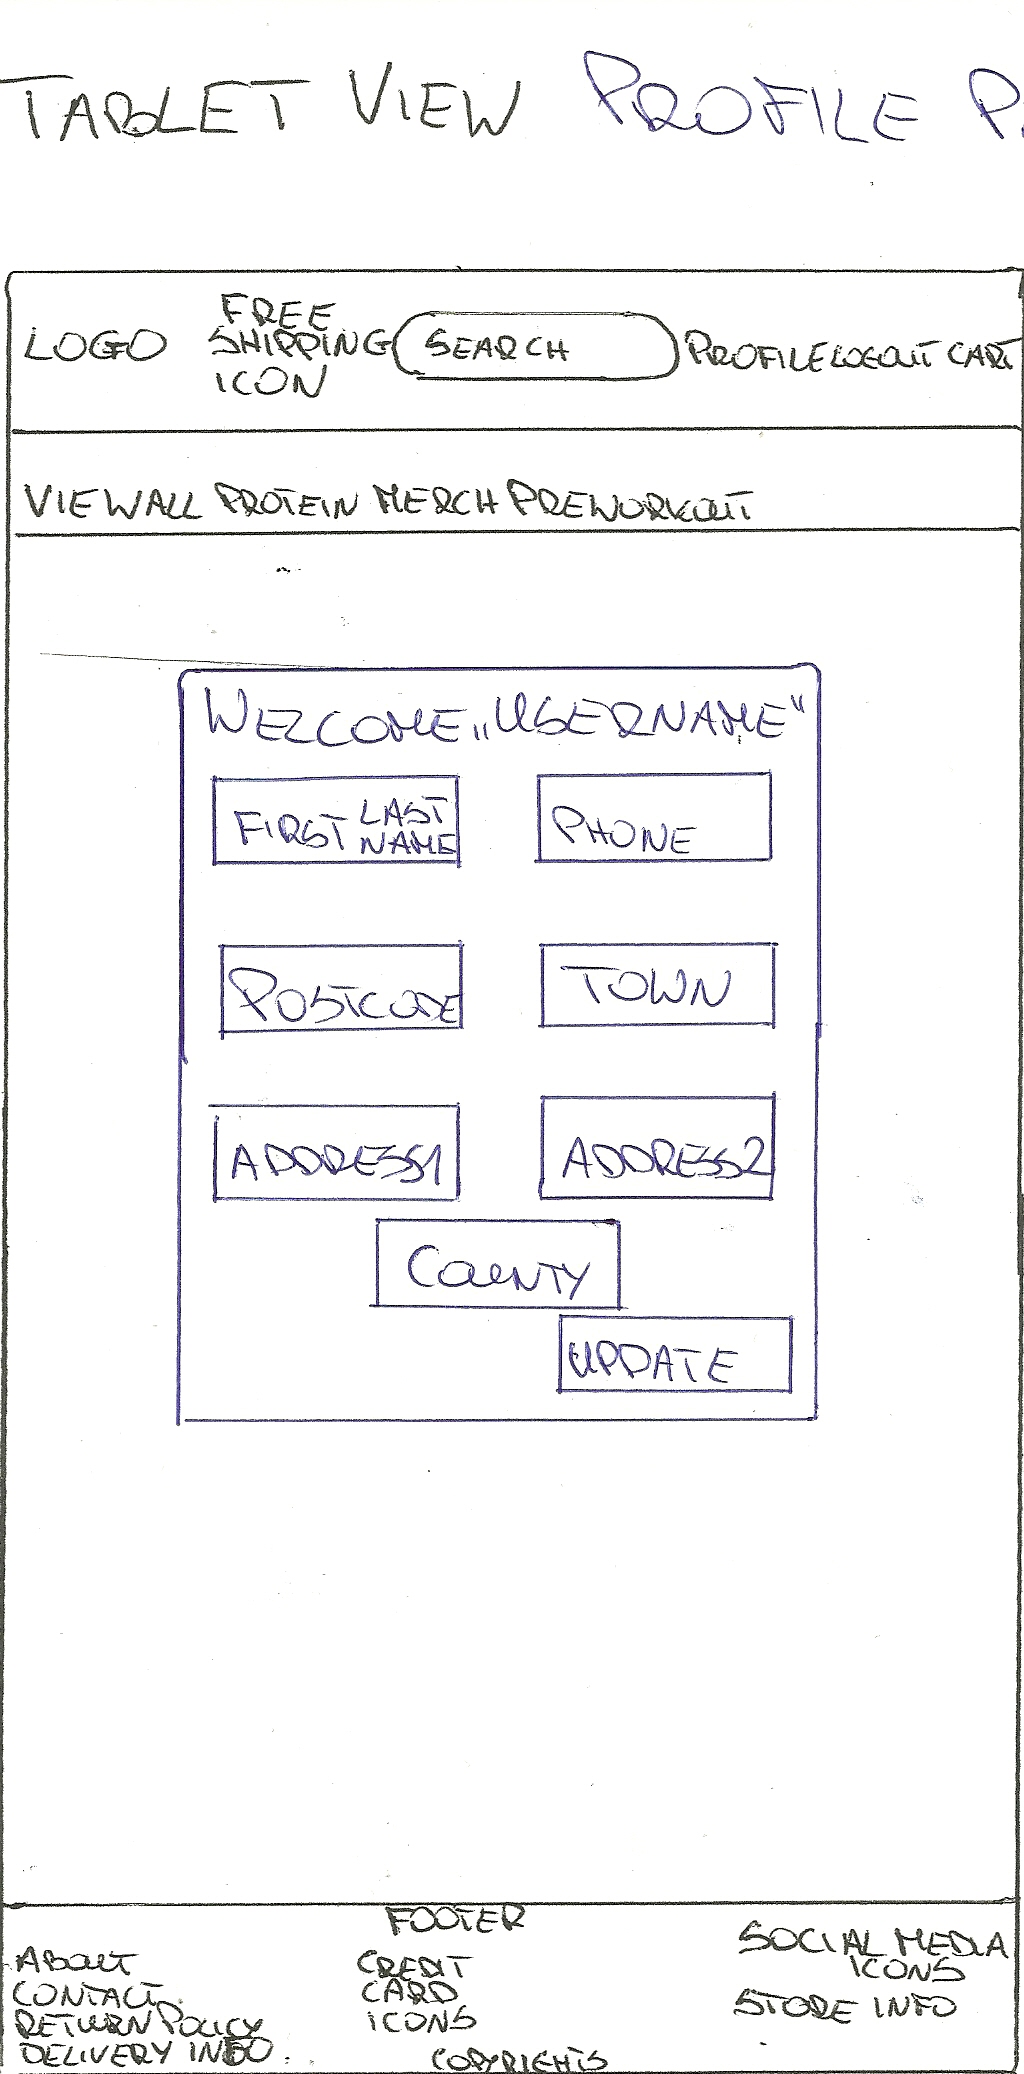 TABLET VIEW PROFILE P
LOGO FREE SHIPPING ICON SEARCH PROFILE LOGOUT CART
VIEW ALL PROTEIN MERCH PREWORKOUT
WELCOME „USERNAME"
FIRST LAST NAME PHONE
POSTCODE TOWN
ADDRESS1 ADDRESS2
COUNTY
UPDATE
FOOTER
ABOUT
CONTACT
RETURN POLICY
DELIVERY INFO
CREDIT
CARD
ICONS
SOCIAL MEDIA
ICONS
STORE INFO
COPYRIGHTS